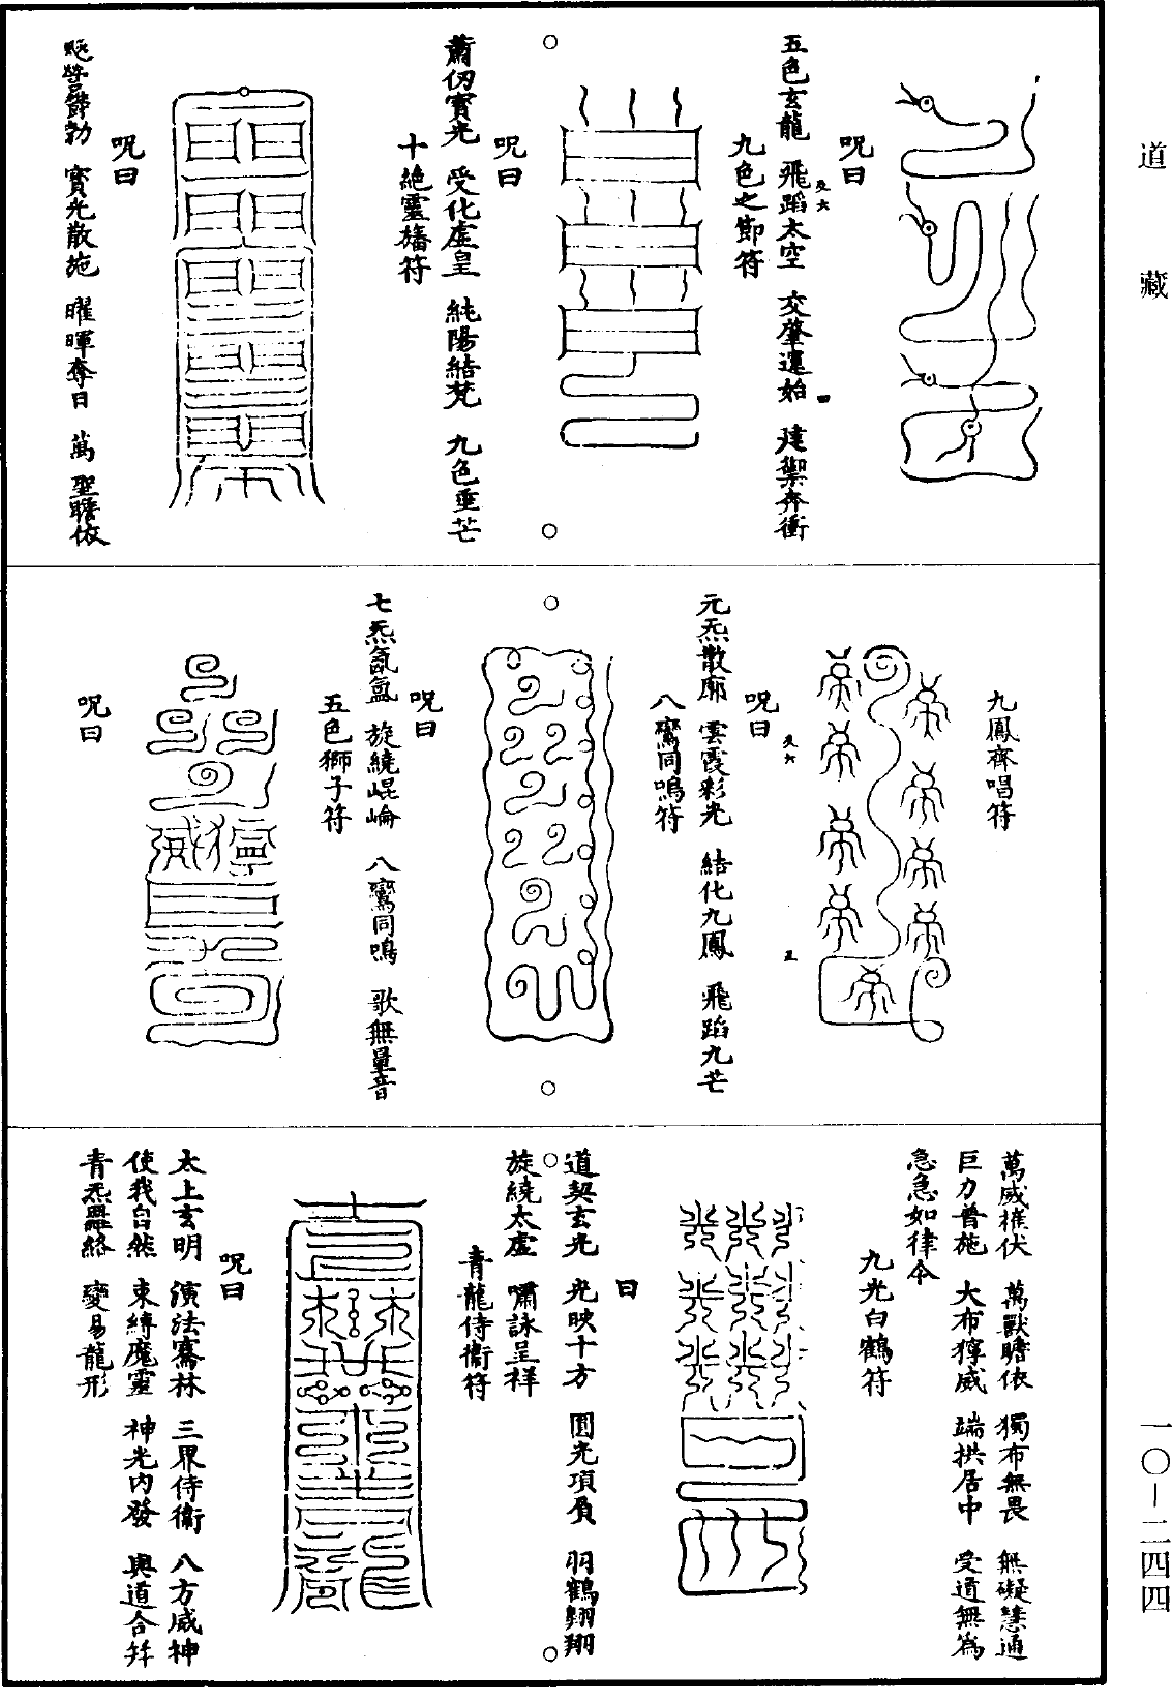 道藏
呪曰
五色玄龍 飛蹈太空 交肇運始 建禦奔衝
九色之節符
呪曰
蕭仞寶光 受化虛皇 純陽結梵 九色垂芒
十絶靈旛符
呪曰
寶光散施 曜暉奪日 萬聖瞻依
九鳳齊唱符
呪曰
元炁散廓 雲霞彩光 結化九鳳 飛蹈九芒
八鸞同鳴符
呪曰
七炁氤氳 旋繞崐崙 八鸞同鳴 歌無量音
五色獅子符
呪曰
萬威摧伏 萬獸瞻依 獨布無畏 無礙慧通
巨力普施 大布獰威 端拱居中 受道無為
急急如律令
九光白鶴符
曰
道契玄光 光映十方 圓光項負 羽鶴翱翔
旋繞太虛 嘯詠呈祥
青龍侍衛符
呪曰
太上玄明 演法騫林 三界侍衛 八方威神
使我自然 束縛魔靈 神光内發 與道合并
青炁羅絡 變易龍形
一〇－二四四